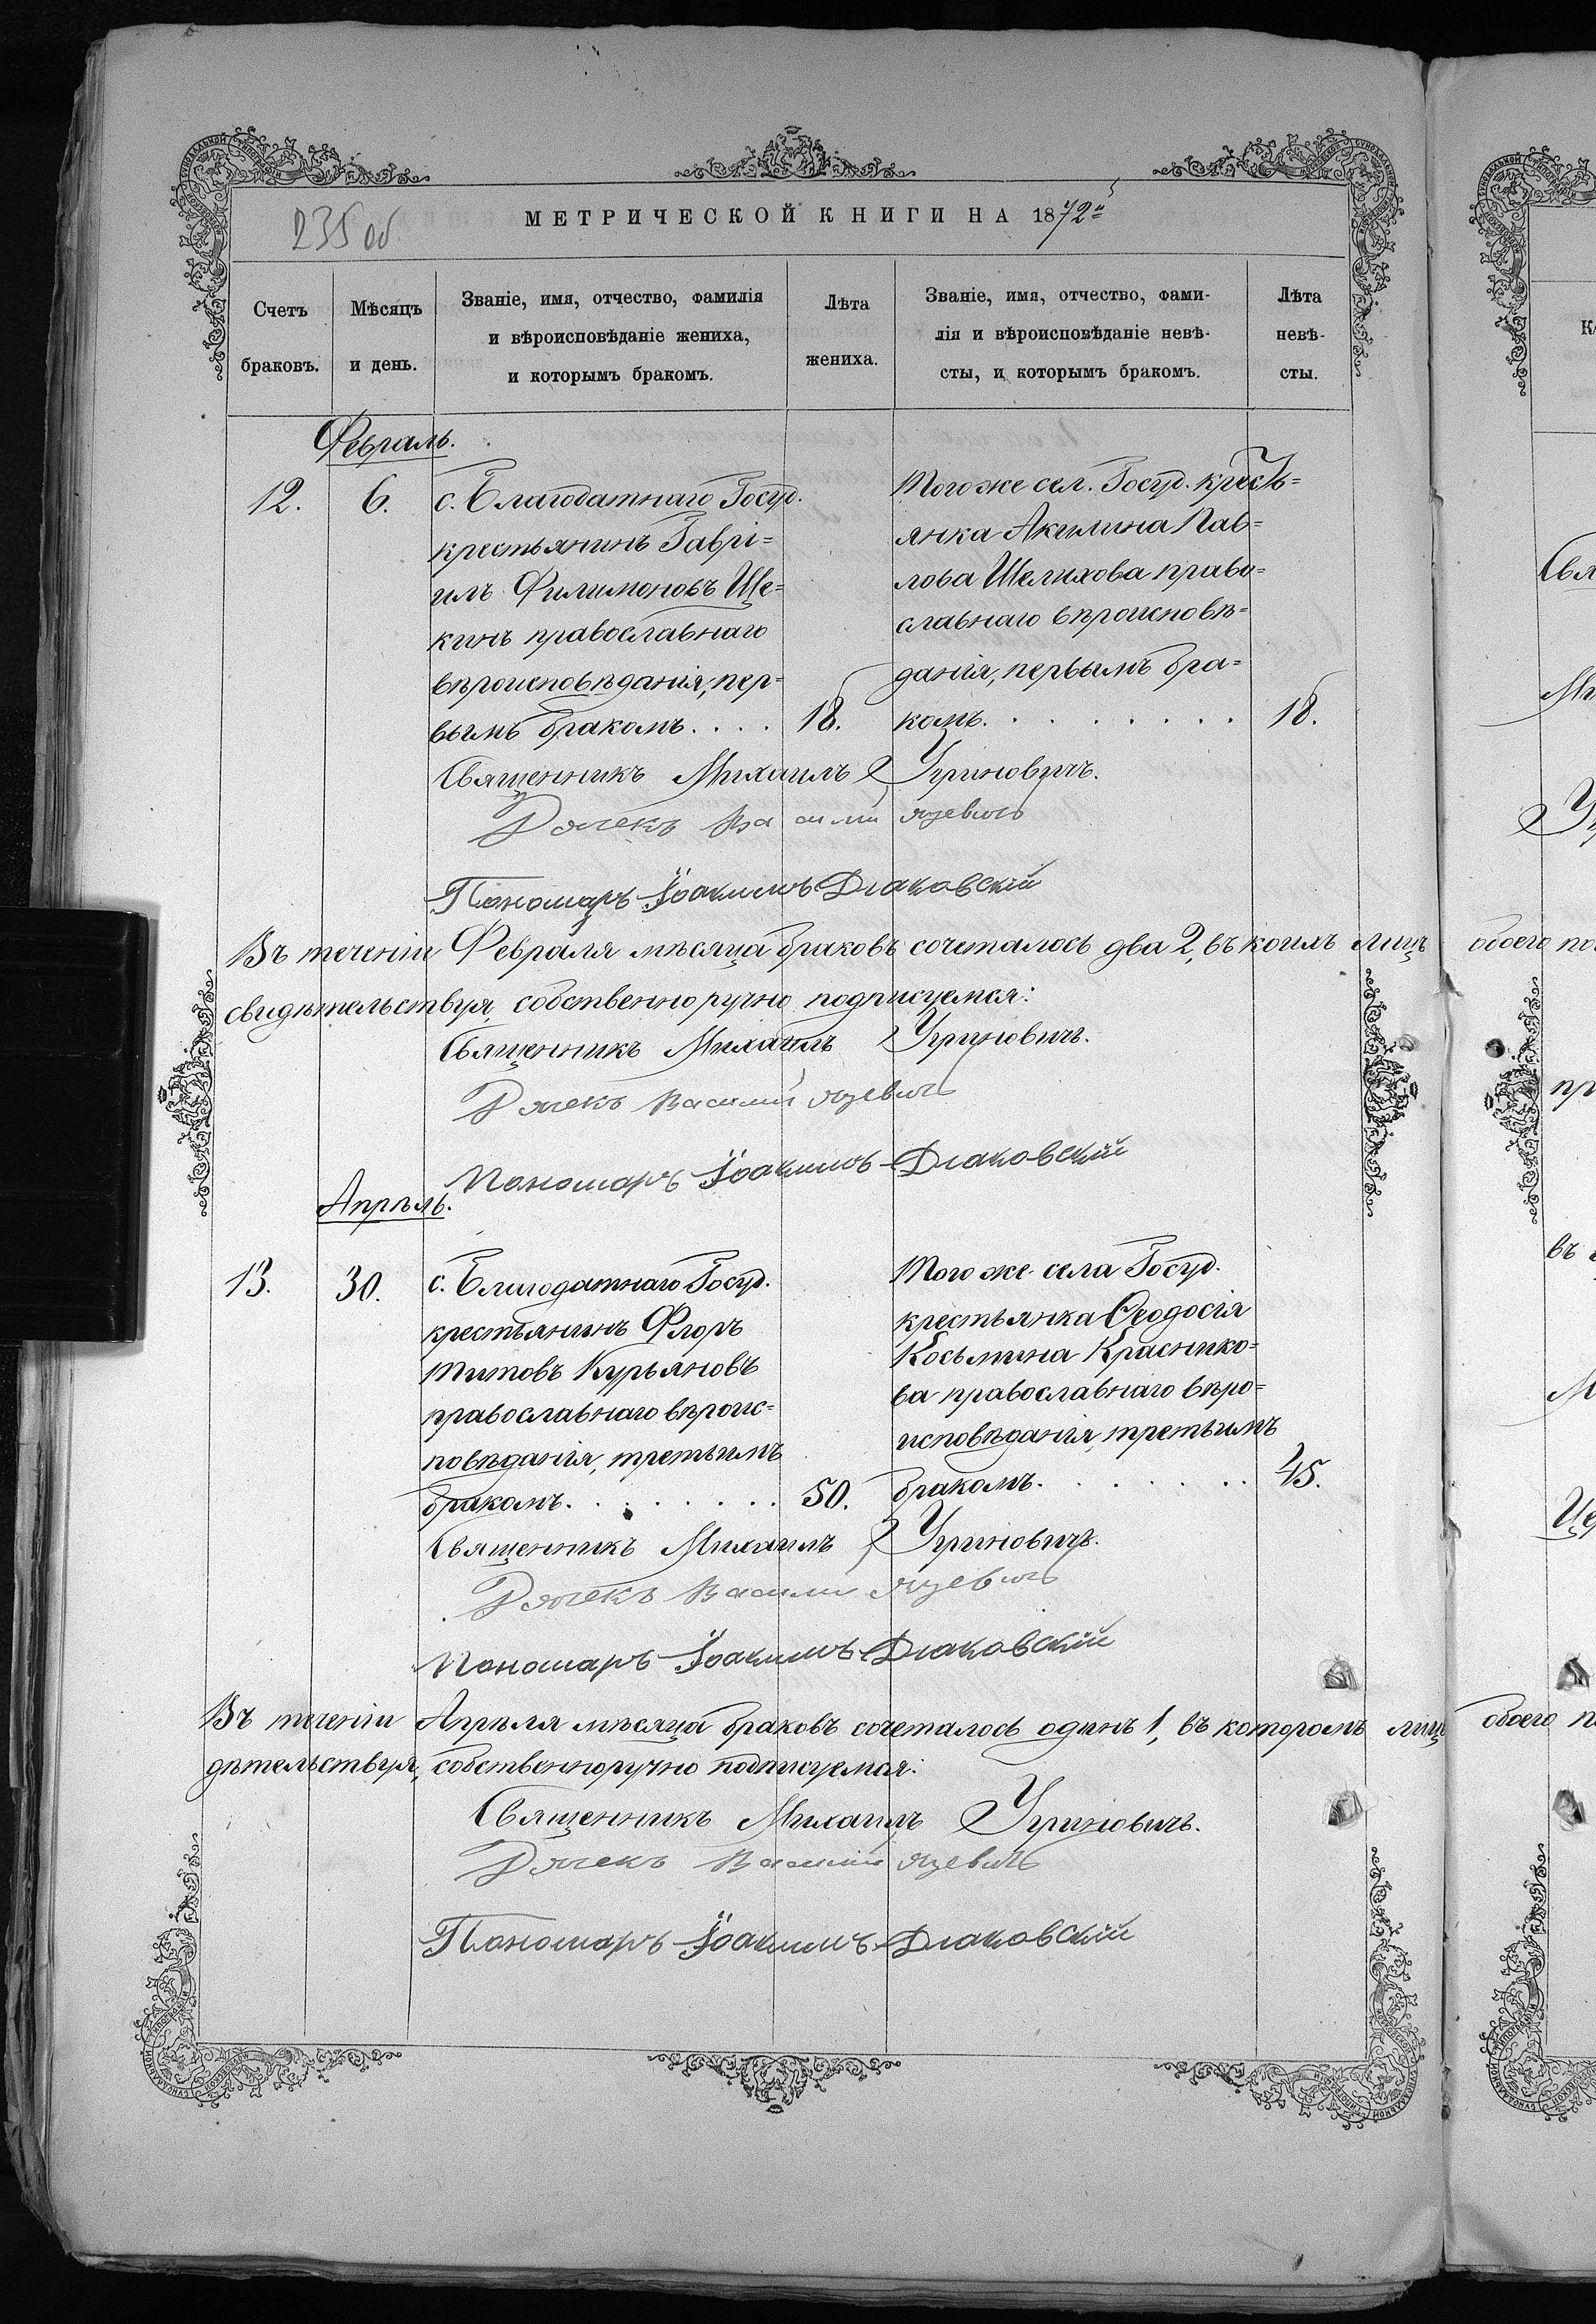 235 об
МЕТРИЧЕСКОЙ КНИГИ НА 1872й
Счетъ браковъ.
Мѣсяцъ и день.
Званіе, имя, отчество, фамилія
и вѣроисповѣданіе жениха,
и которымъ бракомъ.
Лѣта
жениха.
Званіе, имя, отчество, фами-
лія и вѣроисповѣданіе невѣ-
сты, и которымъ бракомъ.
Лѣта
невѣ-
сты.
Февраль.
12.
6.
с. Благодатнаго Госуд.
крестьянинъ Гаврі=
илъ Филимоновъ Ще=
кинъ православнаго
вѣроисповѣданія, пер=
вымъ бракомъ. . . . 18.
Того же сел. Госуд. кресть=
янка Акилина Пав=
лова Шелихова право=
славнаго вѣроисповѣ=
данія, первымъ бра=
комъ. . . . . . . . 18.
Священникъ Михаилъ Угриновичъ.
Дячекъ Василий Яцевичъ
Пономаръ Іоакимъ Діаковскій
Въ теченіи Февраля мѣсяца браковъ сочеталось два 2, въ коихъ лицъ
свидѣтельствуя, собственноручно подписуемся:
Священникъ Михаилъ Угриновичъ.
Дячекъ Василий Яцевичъ
Пономаръ Іоакимъ Діаковскій
Апрѣль.
13.
30.
с. Благодатнаго Госуд.
крестьянинъ Флоръ
Титовъ Курьяновъ
православнаго вѣроис=
повѣданія, третьимъ
бракомъ. . . . . . . 50.
Того же села Госуд.
крестьянка Ѳеодосія
Косьмина Краснико=
ва православнаго вѣро=
исповѣданія, третьимъ
бракомъ. . . . . . . 45.
Священникъ Михаилъ Угриновичъ.
Дячекъ Василий Яцевичъ
Пономаръ Іоакимъ Діаковскій
Въ теченіи Апрѣля мѣсяца браковъ сочеталось одинъ 1, въ которомъ лицъ
дѣтельствуя, собственноручно подписуемся:
Священникъ Михаилъ Угриновичъ.
Дячекъ Василий Яцевичъ
Пономаръ Іоакимъ Діаковскій
обоего
въ
обоего